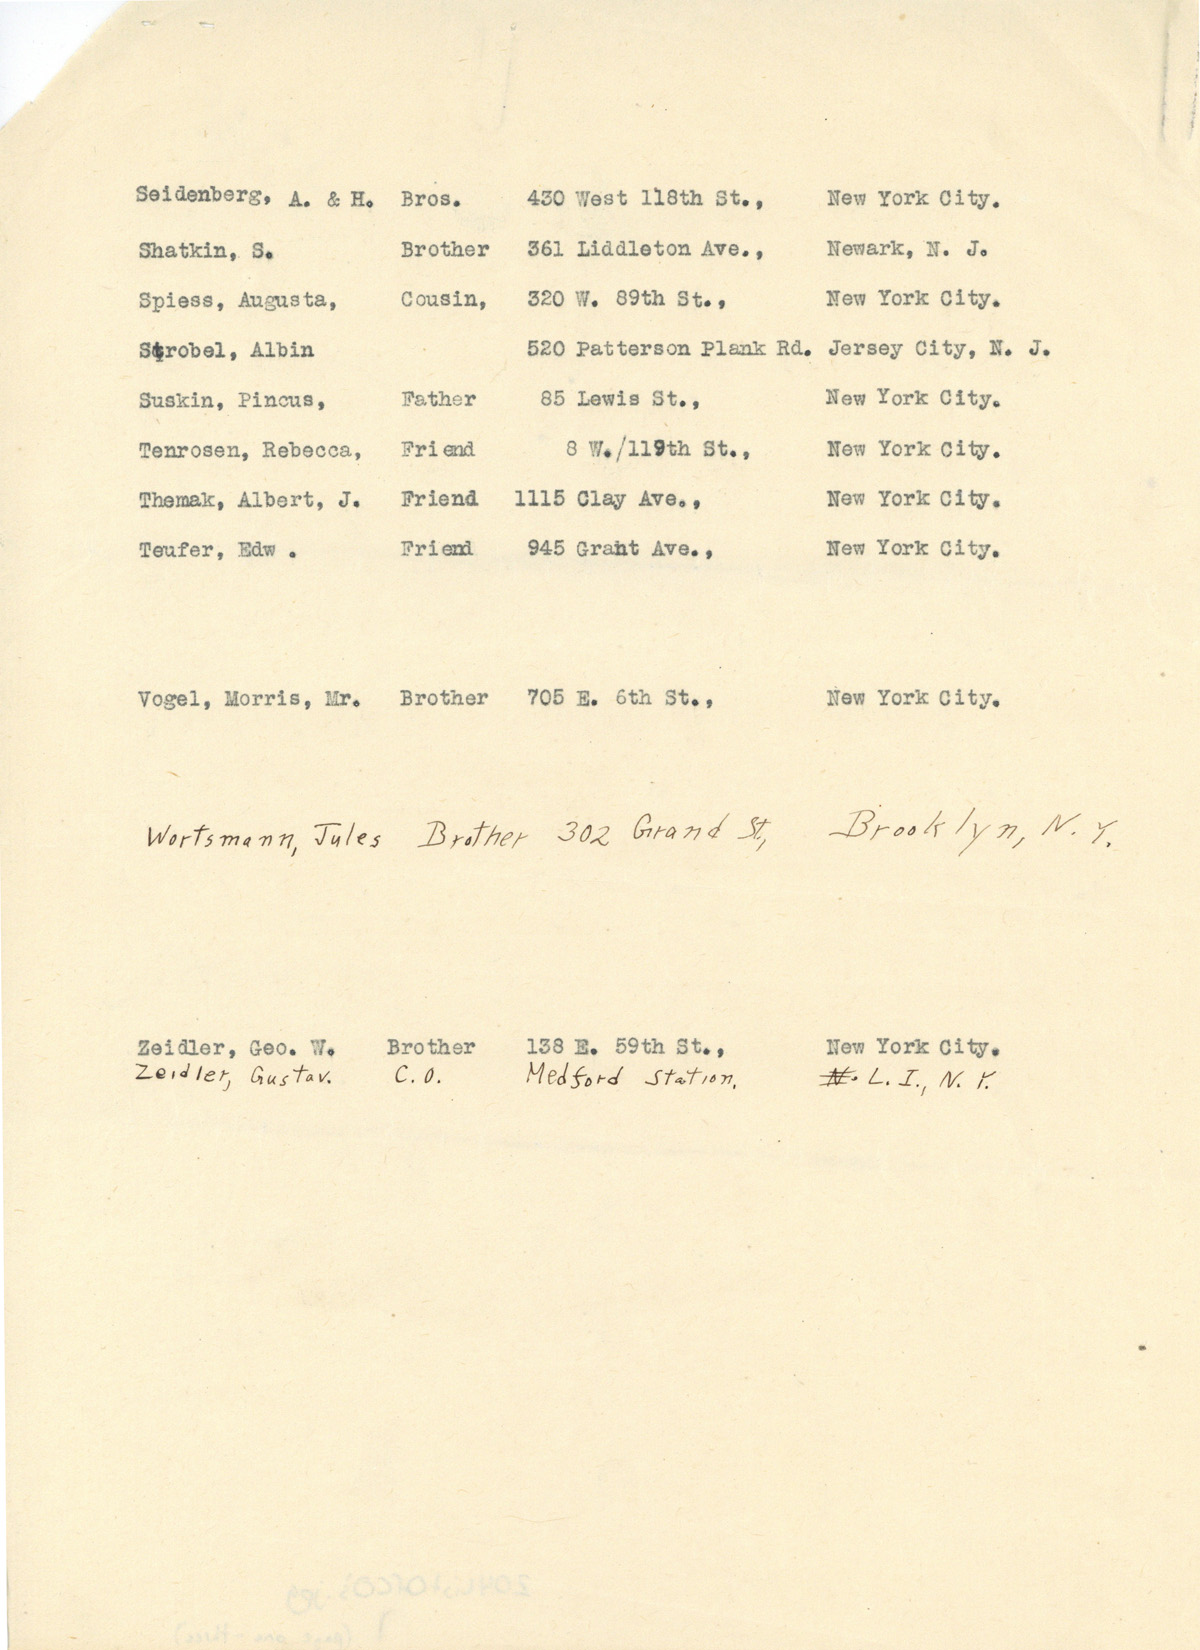 Seidenberg, A. & H. Bros. 430 West 118th St., New York City.
Shatkin, S. Brother 361 Liddleton Ave., Newark, N. J.
Spiess, Augusta, Cousin, 320 W. 89th St., New York City.
Strobel, Albin 520 Patterson Plank Rd. Jersey City, N. J.
Suskin, Pincus, Father 85 Lewis St., New York City.
Tenrosen, Rebecca, Friend 8 W./119th St., New York City.
Themak, Albert, J. Friend 1115 Clay Ave., New York City.
Teufer, Edw . Friend 945 Grant Ave., New York City.
Vogel, Morris, Mr. Brother 705 E. 6th St., New York City.
Wortsmann, Jules Brother 302 Grand St., Brooklyn, N. Y.
Zeidler, Geo. W. Brother 138 E. 59th St., New York City.
Zeidler, Gustav. C. O. Medford Station, N. L. I., N. Y.